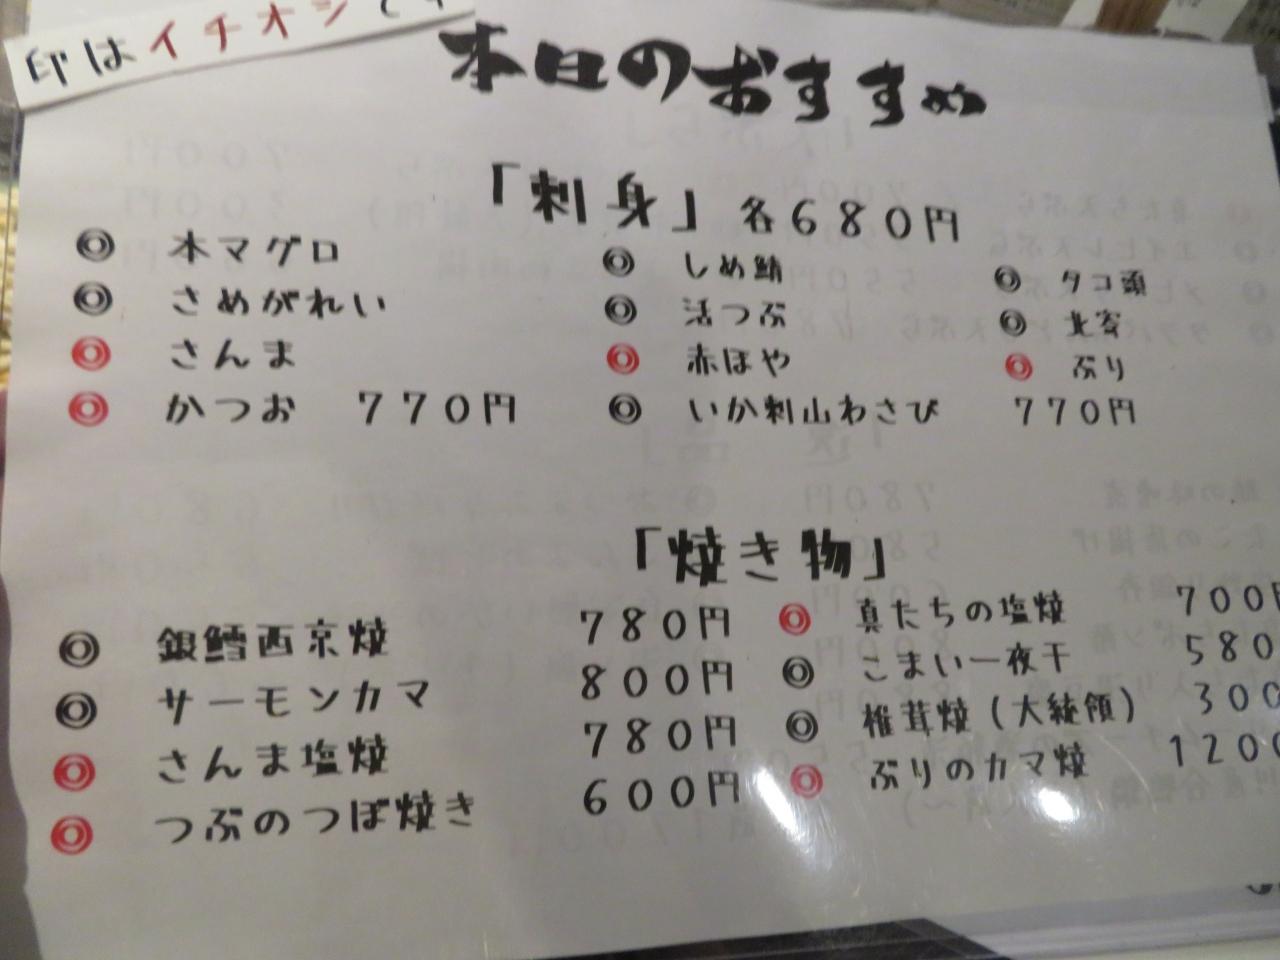 印はイチオシです
本日のおすすめ
「刺身」各680円
◎ 本マグロ
◎ さめがれい
◎ さんま
◎ かつお 770円
◎ しめ鯖
◎ 活つぶ
◎ 赤ほや
◎ いか刺山わさび 770円
◎ タコ頭
◎ 北寄
◎ ぶり
「焼き物」
◎ 銀鱈西京焼 780円
◎ サーモンカマ 800円
◎ さんま塩焼 780円
◎ つぶのつぼ焼き 600円
◎ 真たちの塩焼 700円
◎ こまい一夜干 580
◎ 椎茸焼(大統領) 300
◎ ぶりのカマ焼 1200